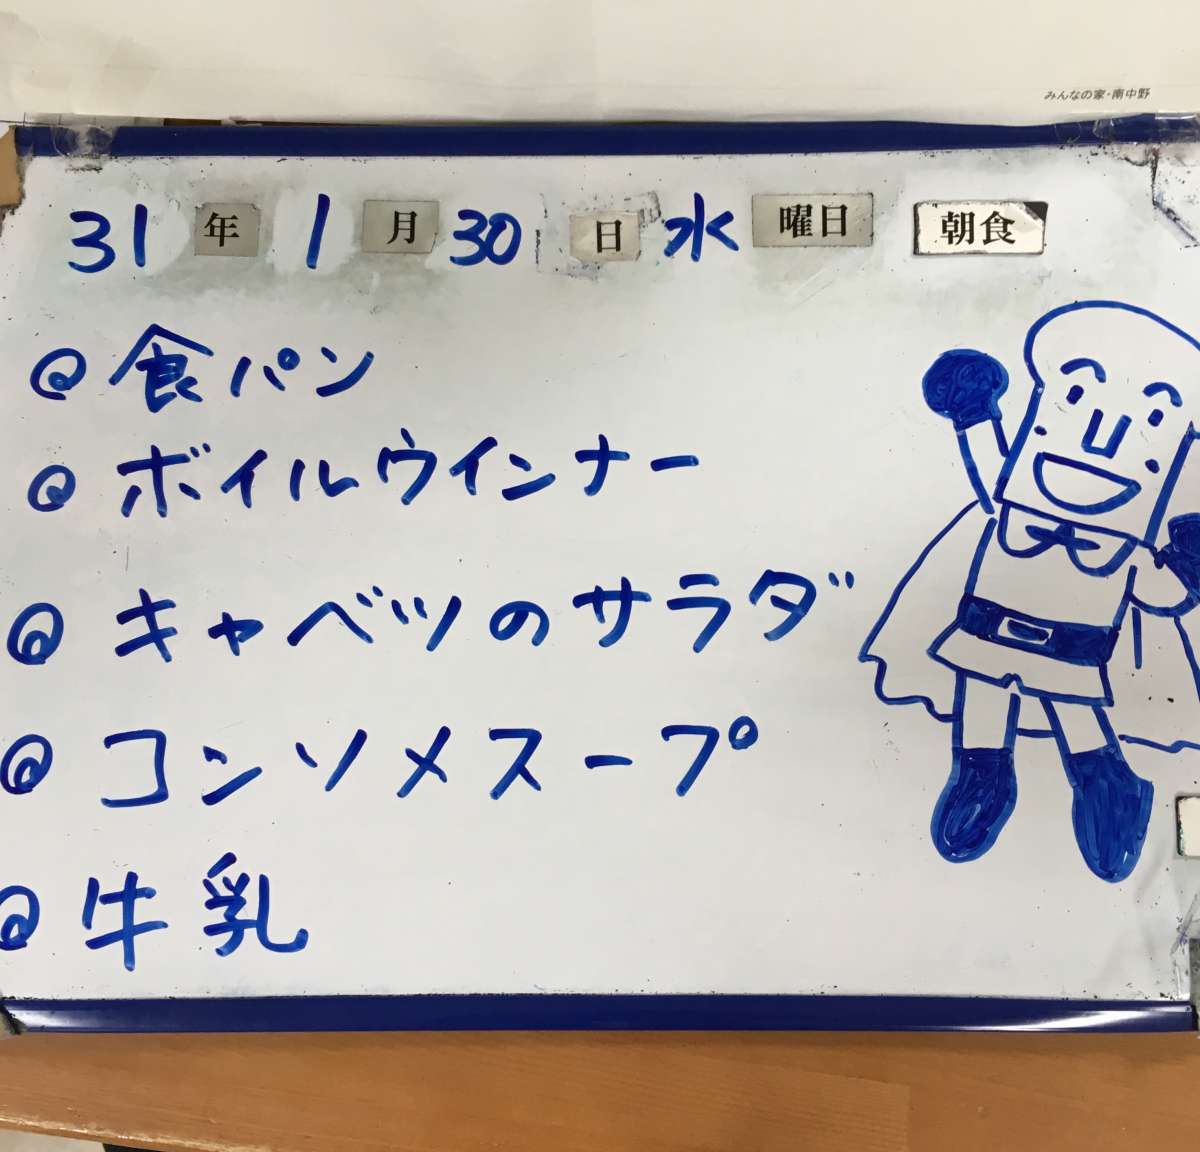 みんなの家・南中野
31年 1月 30日 水曜日 朝食
@ 食パン
@ ボイルウインナー
@ キャベツのサラダ
@ コンソメスープ
@ 牛乳